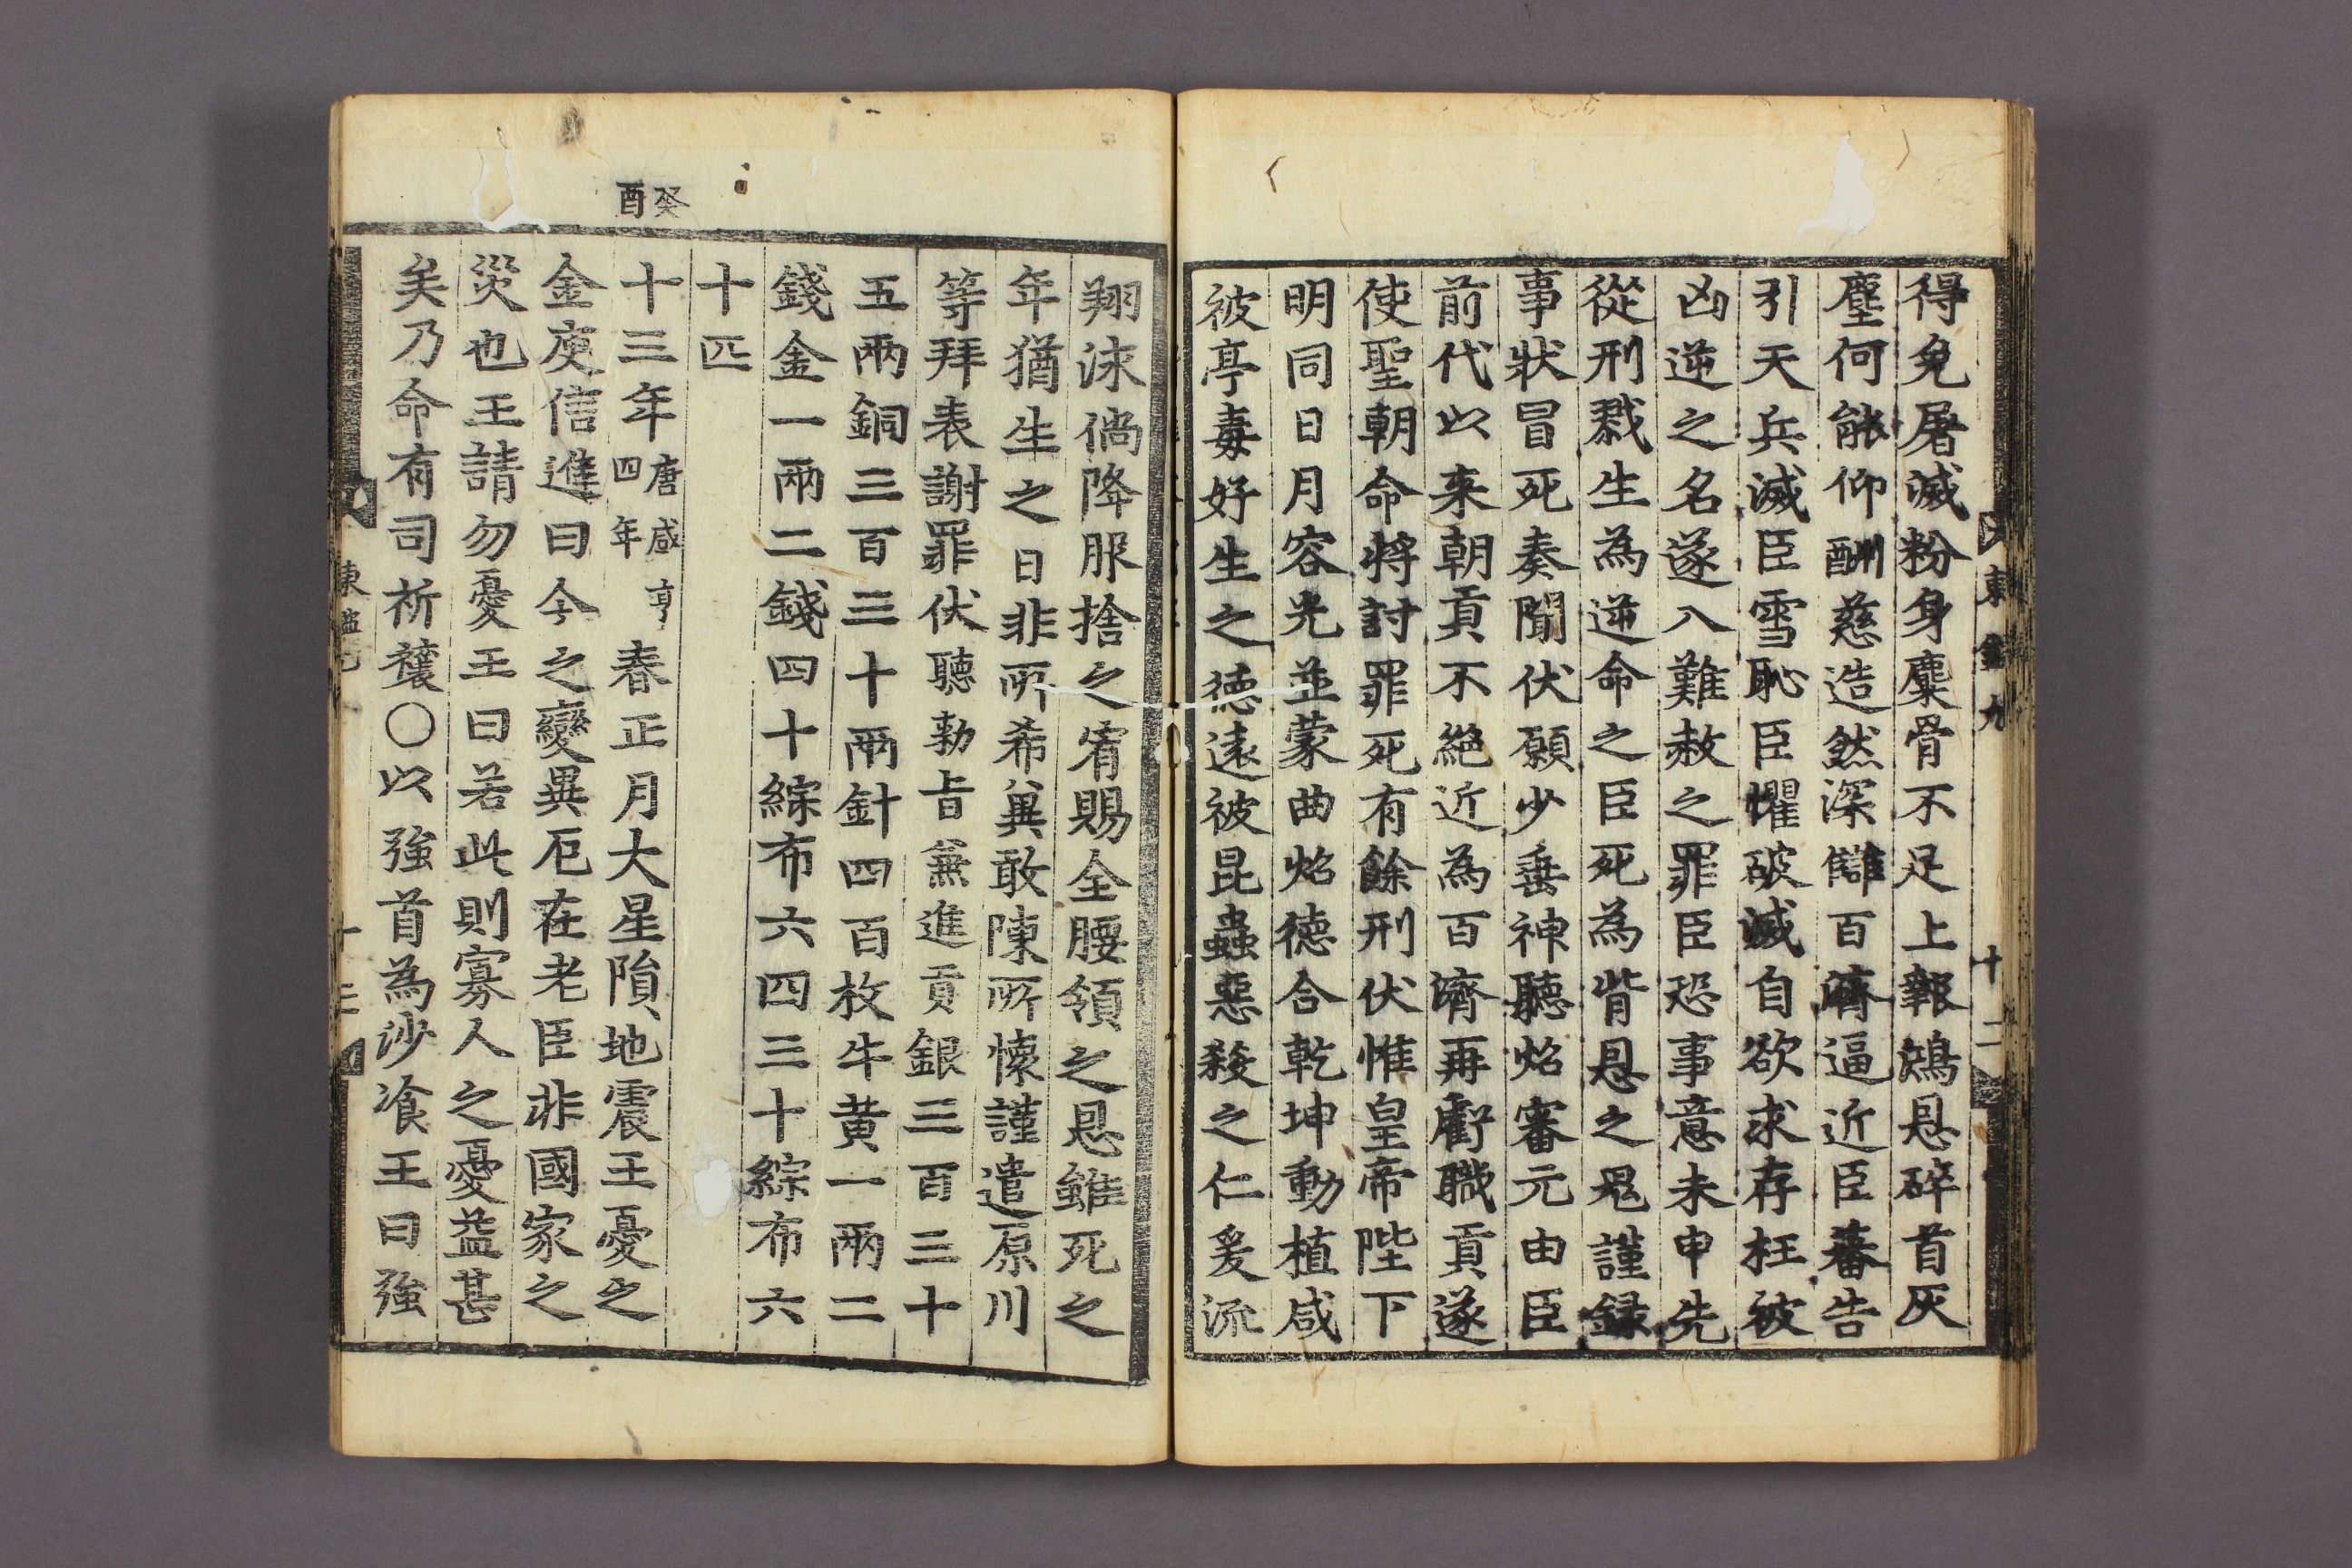 得免屠滅粉身麋骨不足上報鴻恩碎首灰
塵何能仰酬慈造然深讎百濟逼近臣蕃告
引天兵滅臣雪恥臣懼破滅自欲求存枉被
凶逆之名遂入難赦之罪臣恐事意未申先
從刑戮生為逆命之臣死為背恩之鬼謹録
事狀冒死奏聞伏願少垂神聽炤審元由臣
前代以来朝貢不絕近為百濟再虧職貢遂
使聖朝命將討罪死有餘刑伏惟皇帝陛下
明同日月容光並蒙曲炤德合乾坤動植咸
被亭毒好生之德遠被昆蟲惡殺之仁爰流
東鑑九
十二
翔泳倘降服捨之宥賜全腰領之恩雖死之
年猶生之日非所希兾敢陳所懷謹遣原川
等拜表謝罪伏聽勑旨兼進貢銀三百三十
五兩銅三百三十兩針四百枚牛黄一兩二
錢金一兩二錢四十綜布六四三十綜布六
十匹
癸酉
十三年唐咸亨四年春正月大星隕地震王憂之
金庾信進曰今之變異厄在老臣非國家之
災也王請勿憂王曰若此則寡人之憂益甚
矣乃命有司祈禳○以強首為沙飡王曰強
東鑑九
十三